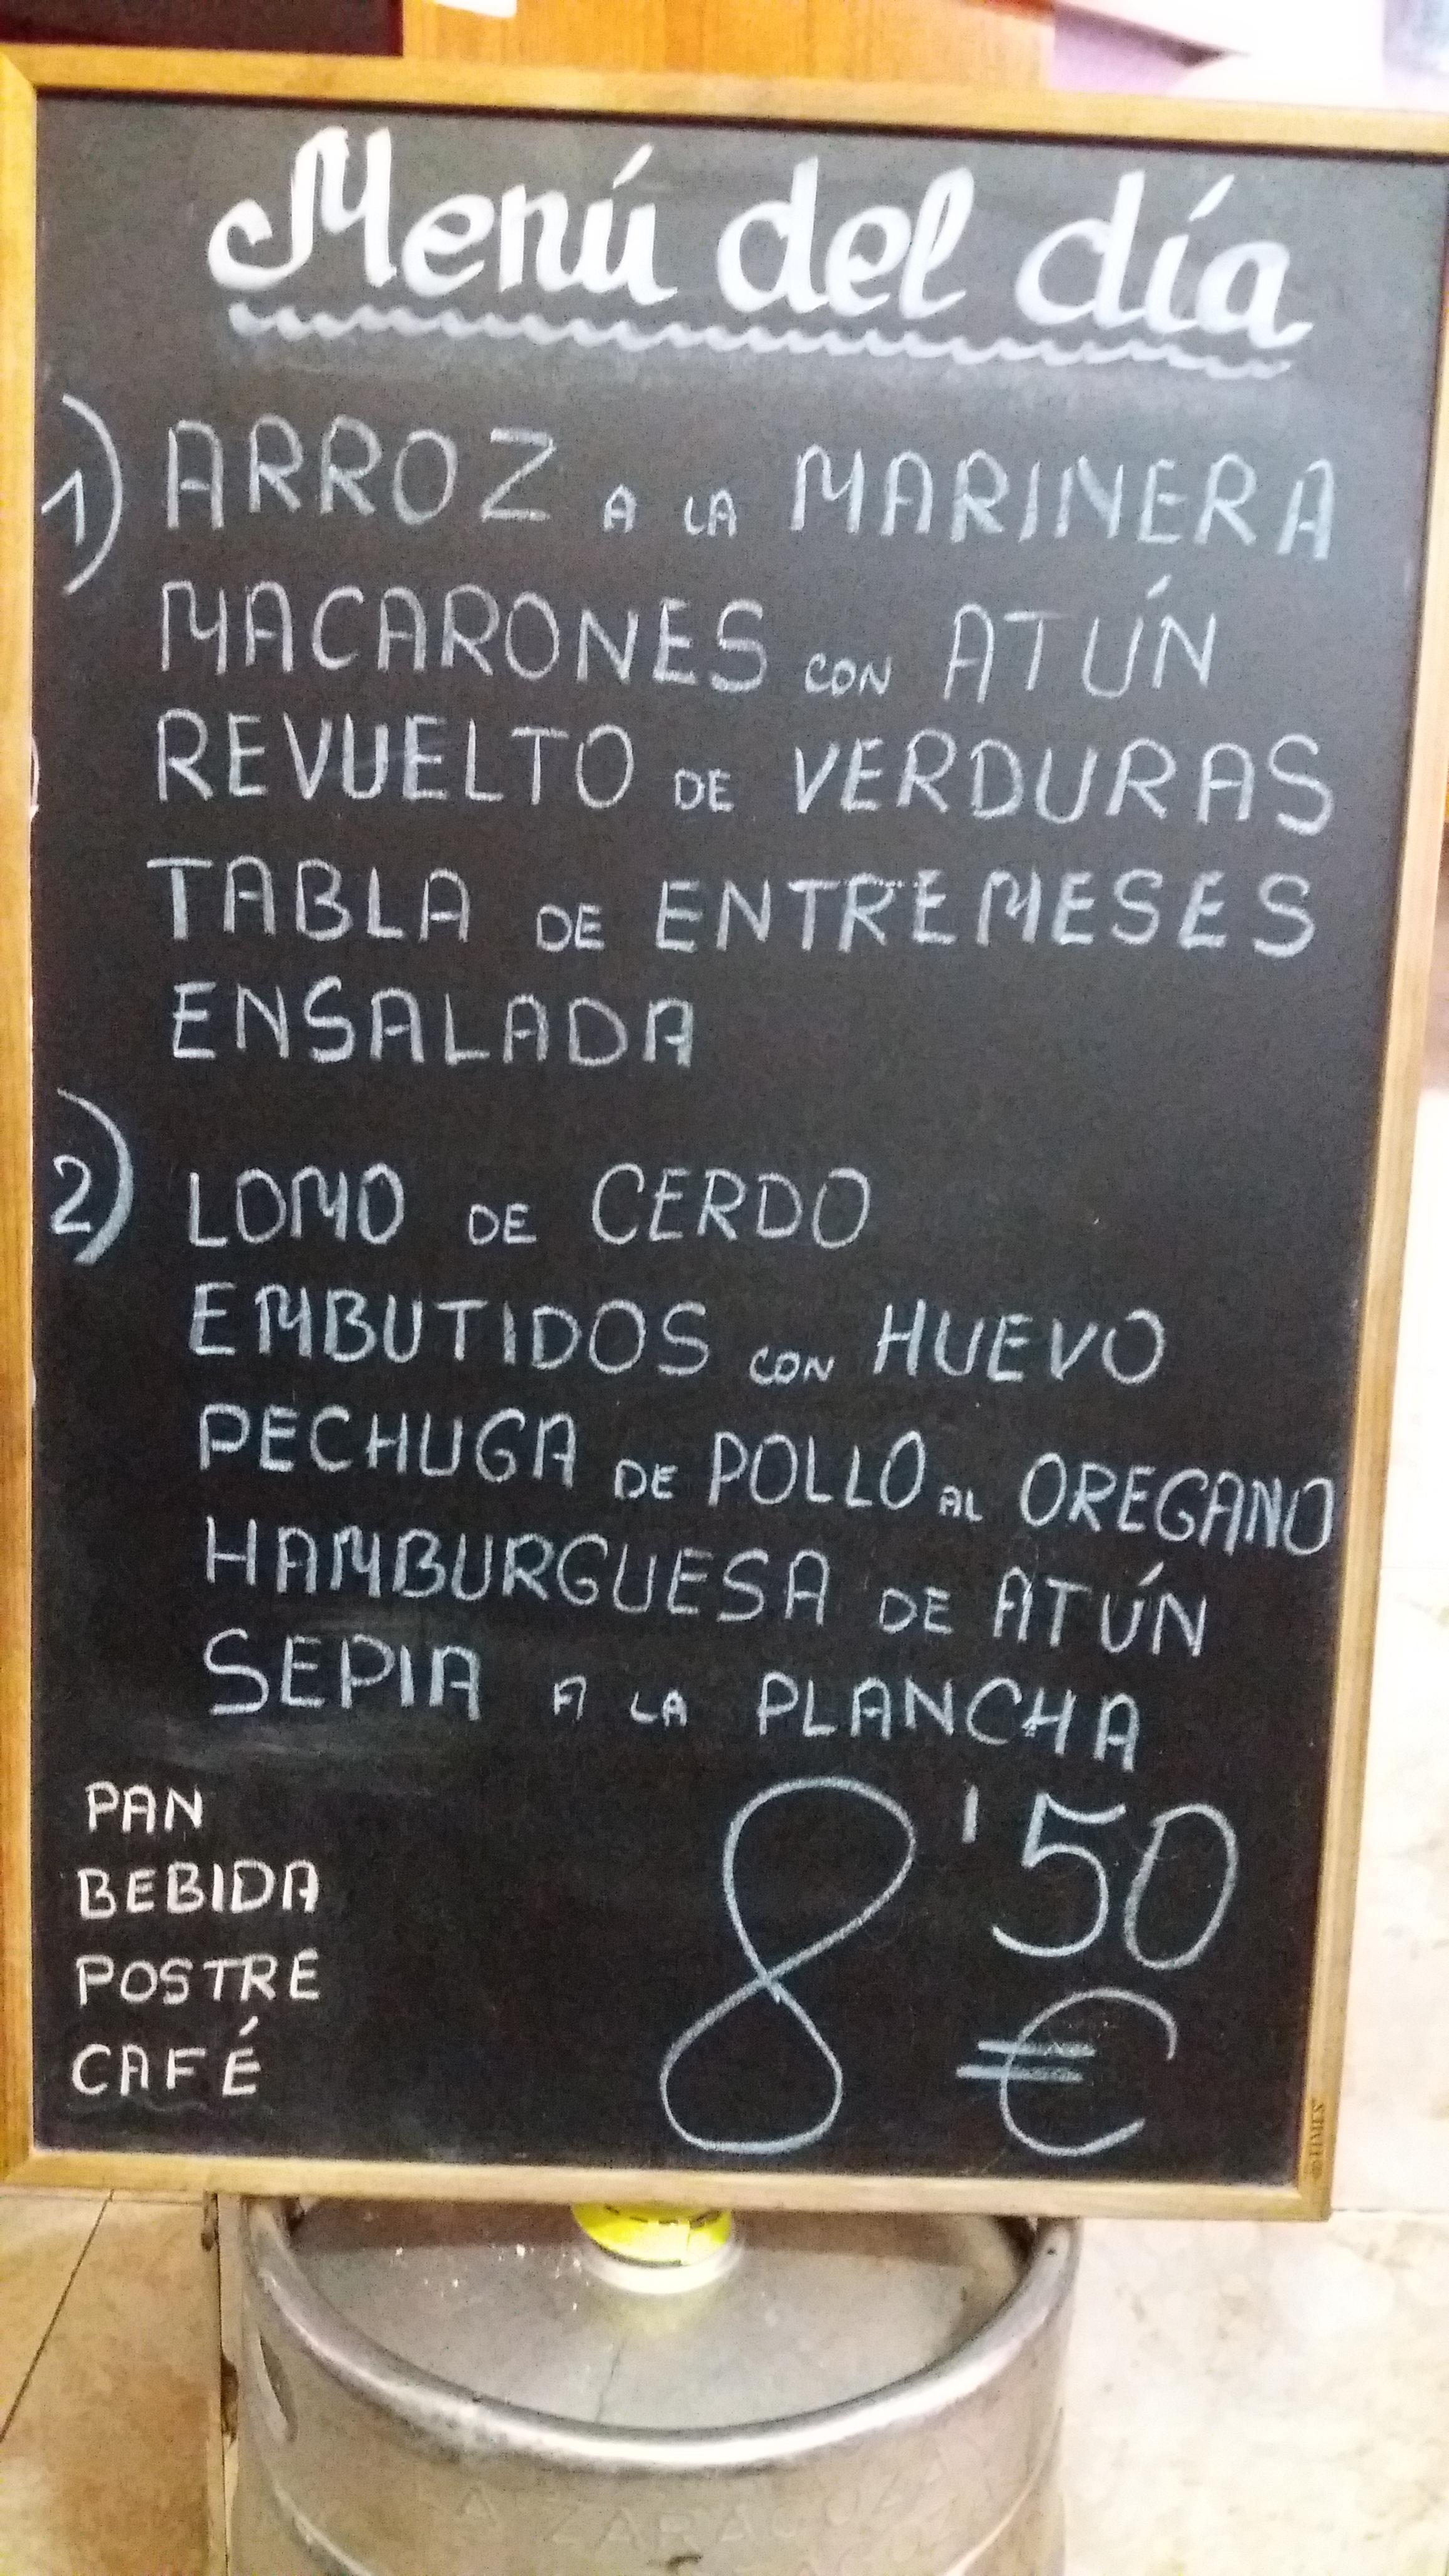 Menú del día
1) ARROZ A LA MARINERA
MACARONES CON ATÚN
REVUELTO DE VERDURAS
TABLA DE ENTREMESES
ENSALADA
2) LOMO DE CERDO
EMBUTIDOS CON HUEVO
PECHUGA DE POLLO AL OREGANO
HAMBURGUESA DE ATÚN
SEPIA A LA PLANCHA
PAN
BEBIDA
POSTRE
CAFÉ
8'50
€
LA ZARAGOZANA